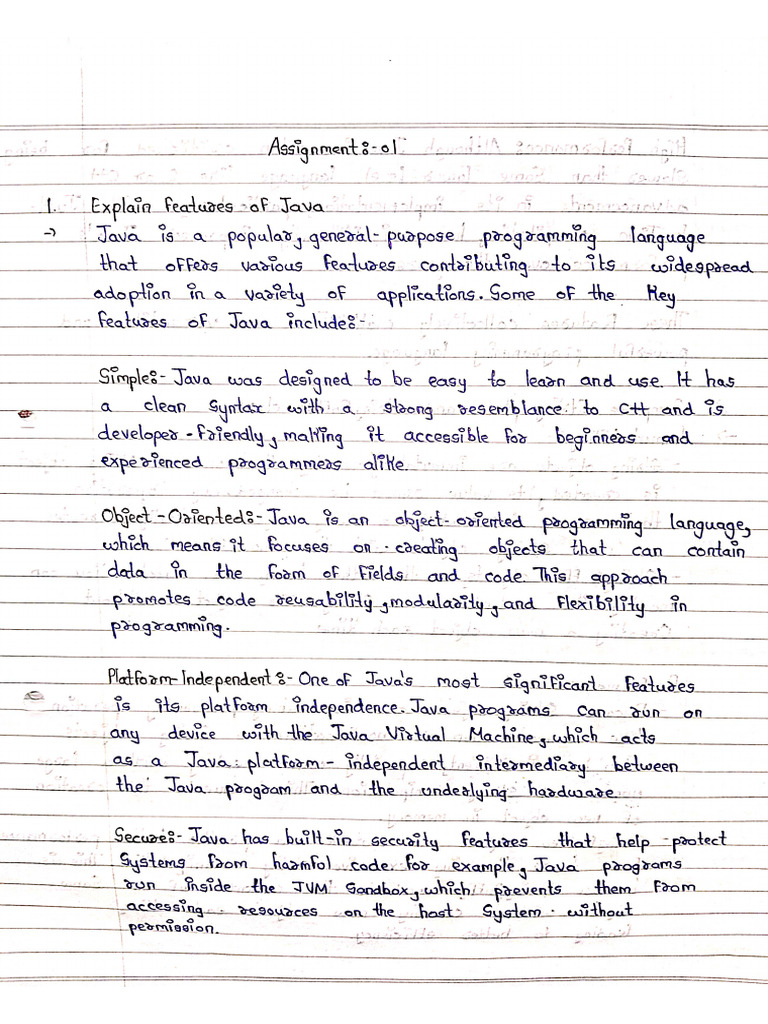 Assignment:-01
1. Explain features of Java
→ Java is a popular, general-purpose programming language
that offers various features contributing to its widespread
adoption in a variety of applications. Some of the Key
features of Java include:-
Simple:- Java was designed to be easy to learn and use. It has
a clean syntax with a strong resemblance to C++ and is
developer-friendly, making it accessible for beginners and
experienced programmers alike.
Object-Oriented:- Java is an object-oriented programming language,
which means it focuses on creating objects that can contain
data in the form of fields and code. This approach
promotes code reusability, modularity, and flexibility in
programming.
Platform-Independent:- One of Java's most significant features
is its platform independence. Java programs can run on
any device with the Java Virtual Machine, which acts
as a Java platform-independent intermediary between
the Java program and the underlying hardware.
Secure:- Java has built-in security features that help protect
Systems from harmful code. for example, Java programs
run inside the JVM Sandbox, which prevents them from
accessing resources on the host System without
permission.